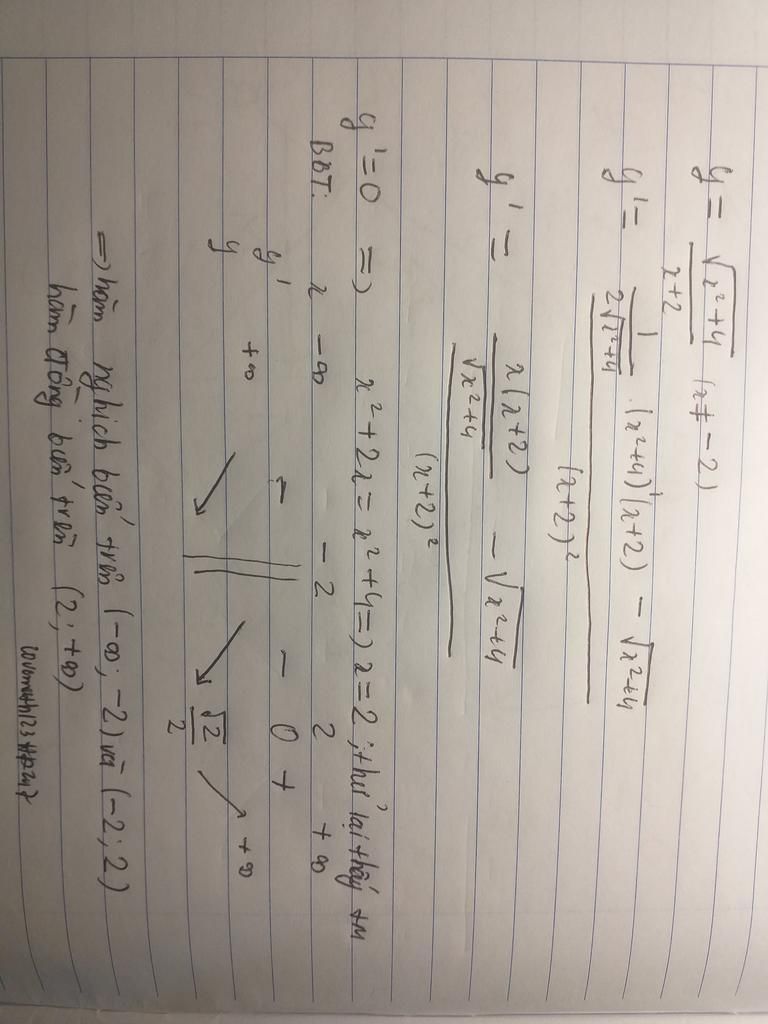 y = √(x²+4) / (x+2) (x ≠ -2)
y' = (1/(2√(x²+4)) . (x²+4)'(x+2) - √(x²+4)) / (x+2)²
y' = (x(x+2)/√(x²+4) - √(x²+4)) / (x+2)²
y' = 0 => x²+2x = x²+4 => x = 2 ; thử lại thấy tm
BBT: x -∞ -2 2 +∞
y' - || - 0 +
y +∞ ↘ || ↘ √2/2 ↗ +∞
=> hàm nghịch biến trên (-∞; -2) và (-2; 2)
hàm đồng biến trên (2; +∞)